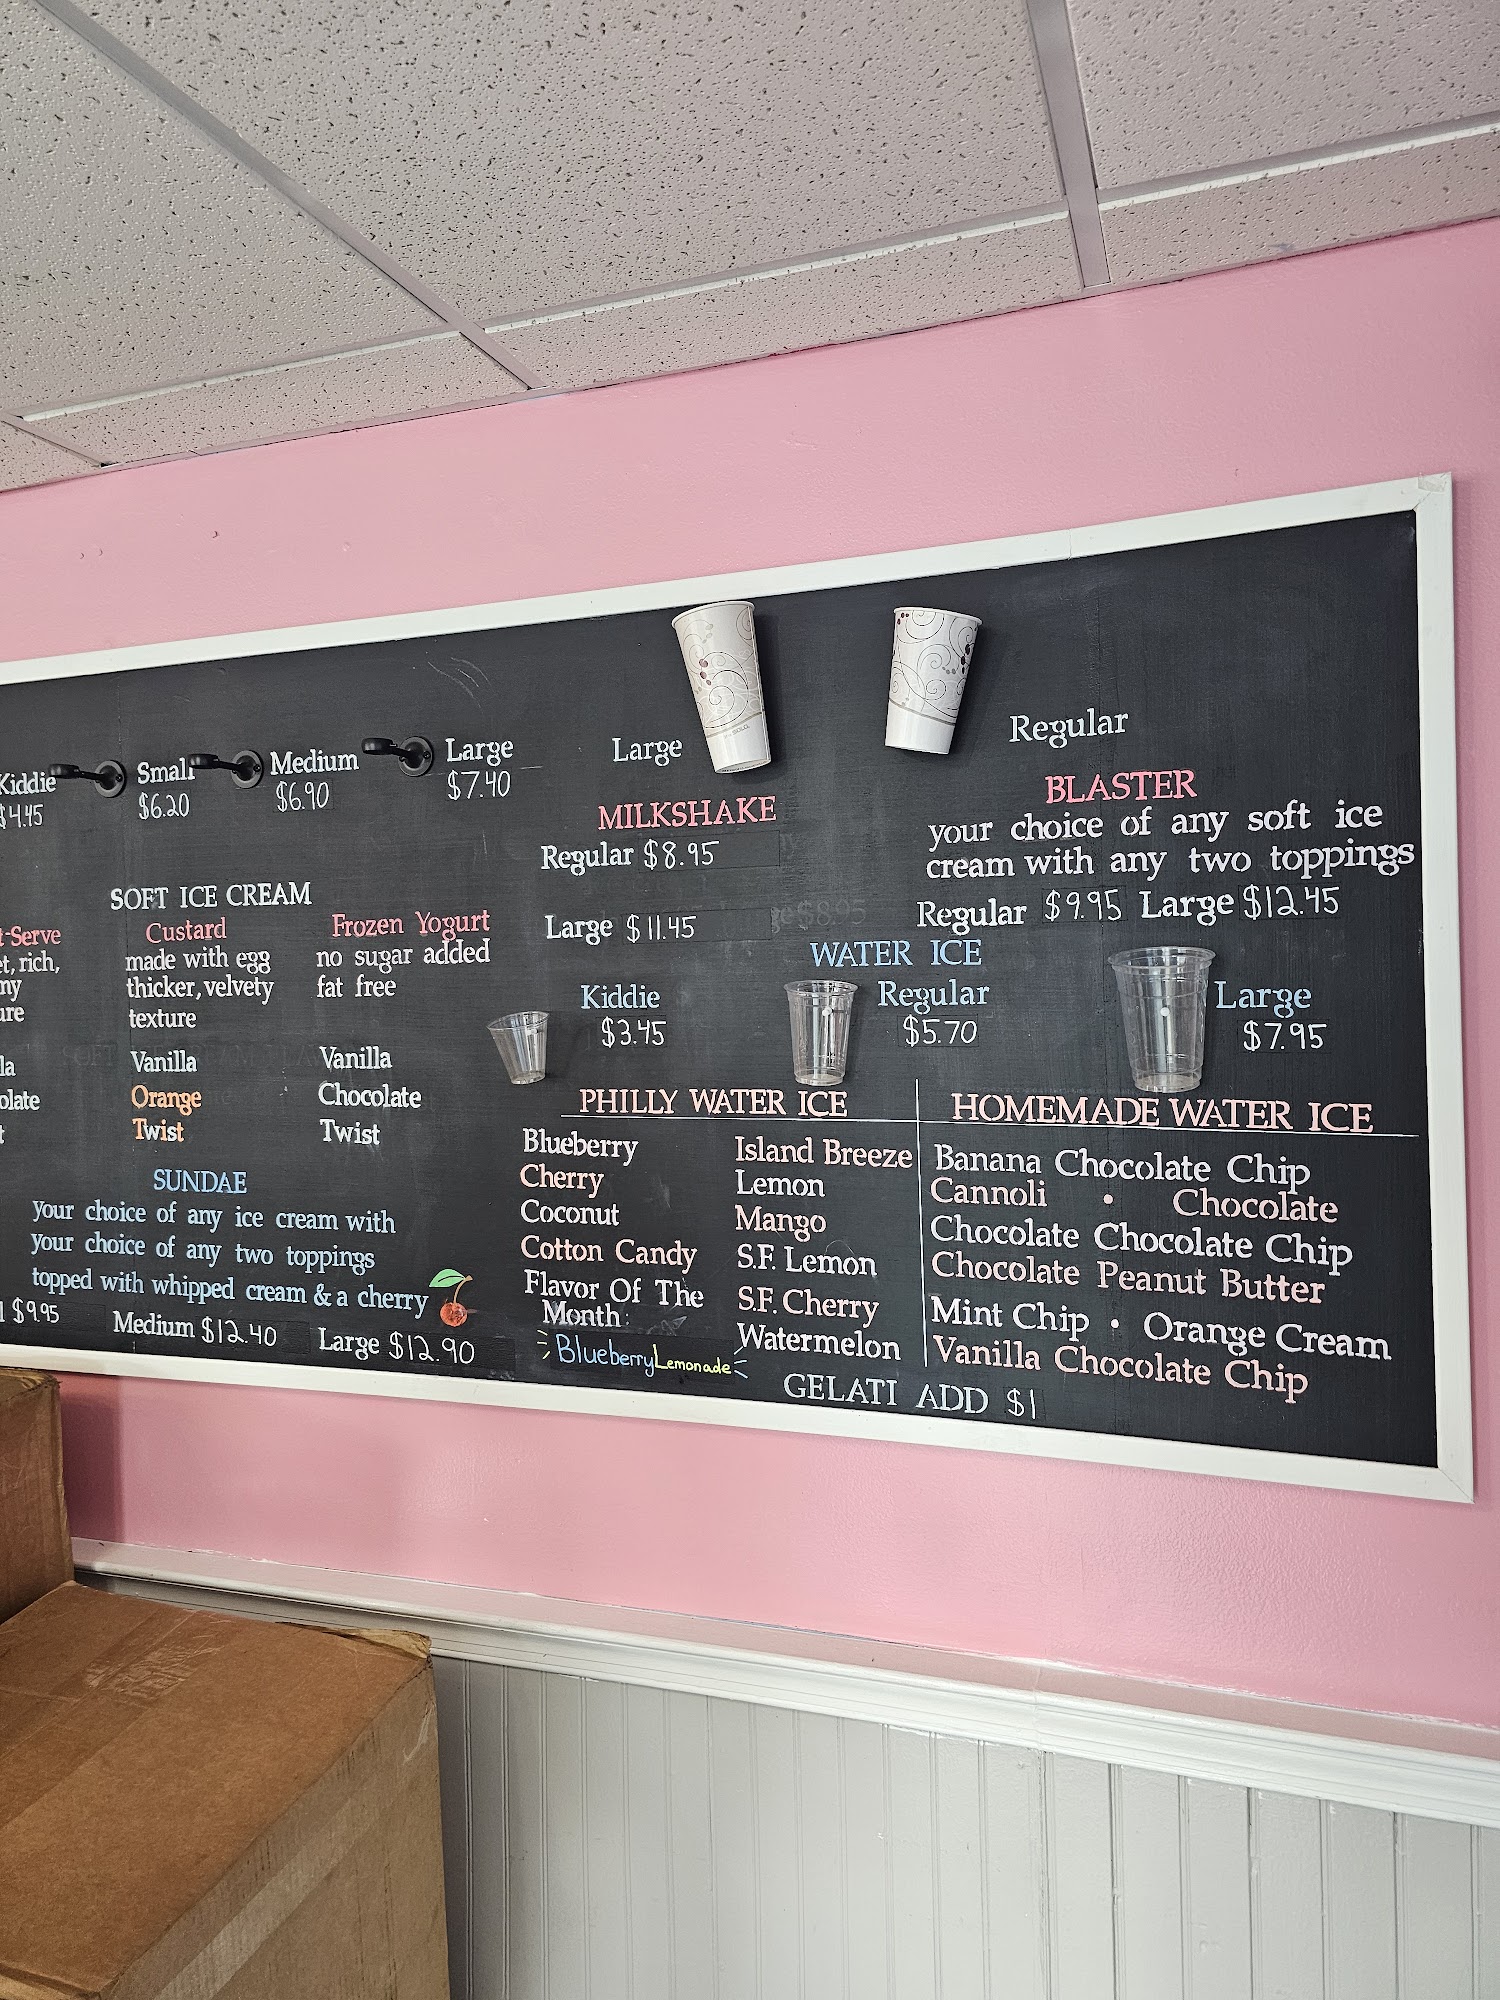 Kiddie
$4.45
Small
$6.20
Medium
$6.90
Large
$7.40
SOFT ICE CREAM
t-Serve
et, rich,
my
ure
la
olate
t
Custard
made with egg
thicker, velvety
texture
Vanilla
Orange
Twist
Frozen Yogurt
no sugar added
fat free
Vanilla
Chocolate
Twist
SUNDAE
your choice of any ice cream with
your choice of any two toppings
topped with whipped cream & a cherry
l $9.95 Medium $12.40 Large $12.90
Large
MILKSHAKE
Regular $8.95
Large $11.45
Regular
BLASTER
your choice of any soft ice
cream with any two toppings
Regular $9.95 Large $12.45
WATER ICE
Kiddie
$3.45
Regular
$5.70
Large
$7.95
PHILLY WATER ICE
Blueberry
Cherry
Coconut
Cotton Candy
Flavor Of The
Month:
Blueberry Lemonade
Island Breeze
Lemon
Mango
S.F. Lemon
S.F. Cherry
Watermelon
HOMEMADE WATER ICE
Banana Chocolate Chip
Cannoli • Chocolate
Chocolate Chocolate Chip
Chocolate Peanut Butter
Mint Chip • Orange Cream
Vanilla Chocolate Chip
GELATI ADD $1